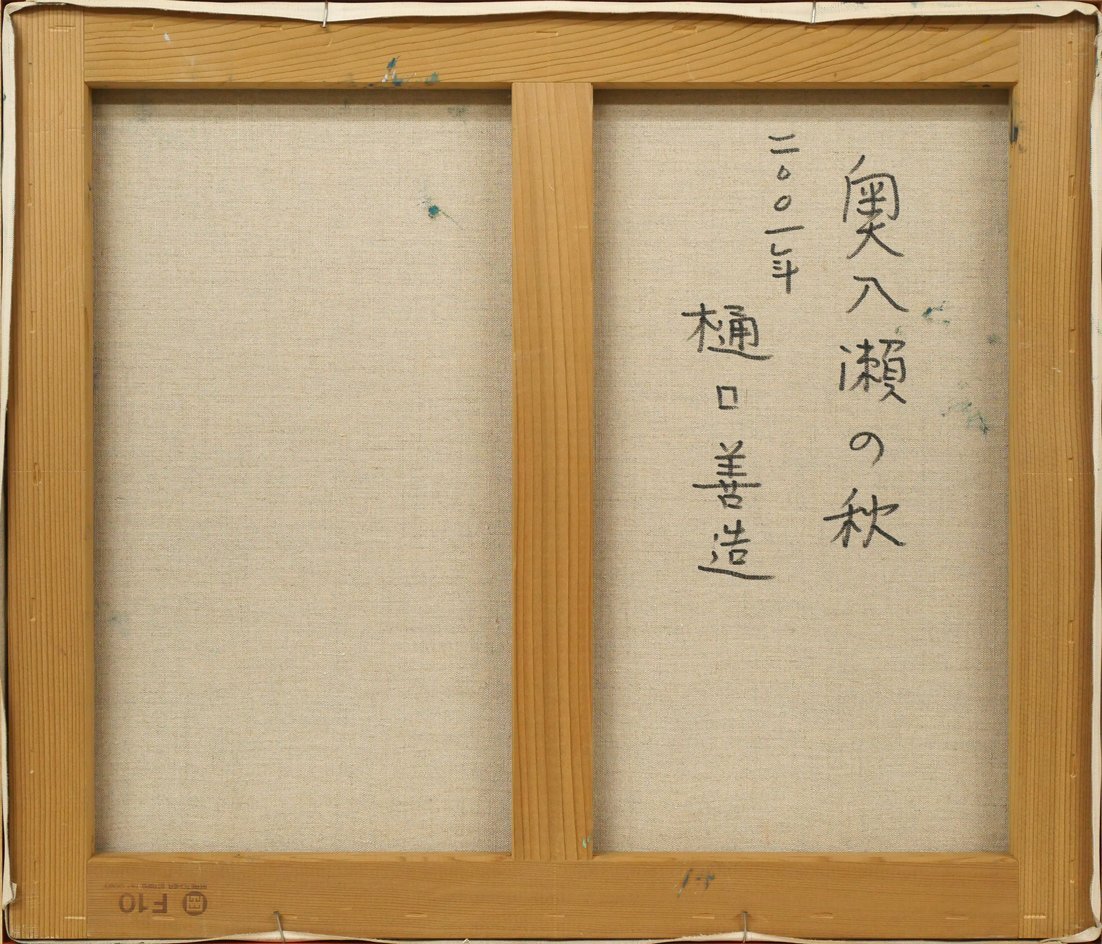 奥入瀬の秋
二〇〇一年
樋口善造
F10